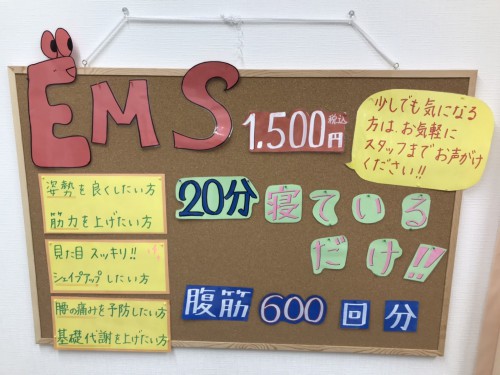 EMS
1.500円
税込
少しでも気になる
方は、お気軽に
スタッフまでお声がけ
ください!!
姿勢を良くしたい方
筋力を上げたい方
20分寝ている
だけ!!
見た目スッキリ!!
シェイプアップしたい方
腰の痛みを予防したい方
基礎代謝を上げたい方
腹筋600回分